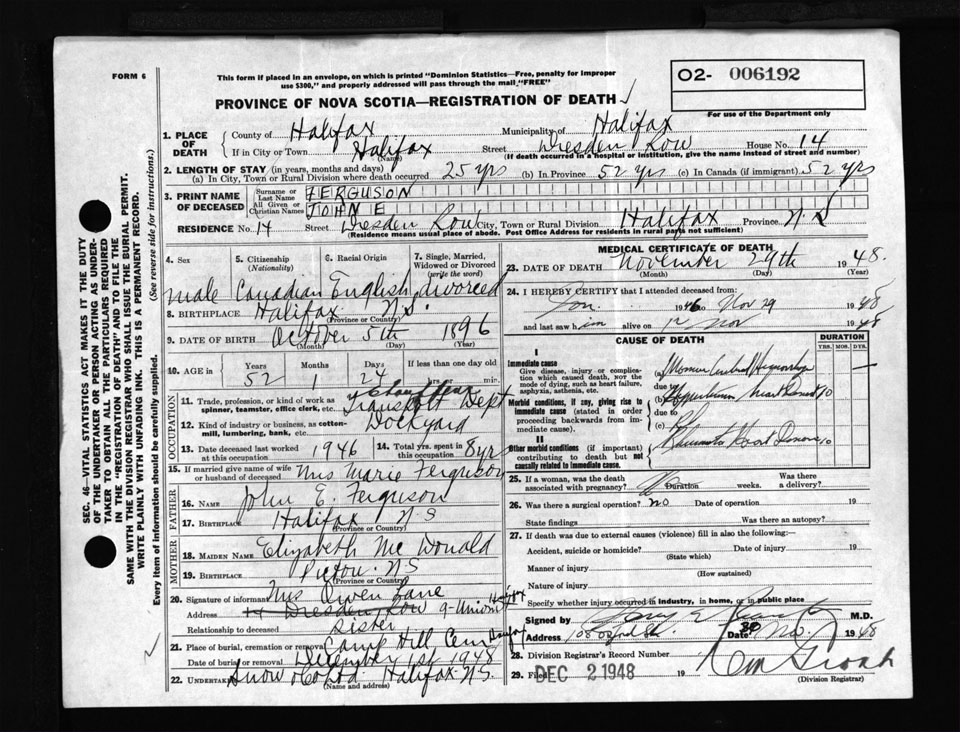 FORM 6
This form if placed in an envelope, on which is printed "Dominion Statistics—Free, penalty for improper
use $300," and properly addressed will pass through the mail "FREE"
O2- 006192
PROVINCE OF NOVA SCOTIA—REGISTRATION OF DEATH
For use of the Department only
1. PLACE OF DEATH County of Halifax Municipality of Halifax
If in City or Town Halifax Street Dresden Row House No. 14
(Name) (If death occurred in a hospital or institution, give the name instead of street and number)
2. LENGTH OF STAY (in years, months and days)
(a) In City, Town or Rural Division where death occurred 25 yrs (b) In Province 52 yrs (c) In Canada (if immigrant) 52 yrs
3. PRINT NAME OF DECEASED Surname or Last Name FERGUSON
All Given or Christian Names JOHN E
RESIDENCE No. 14 Street Dresden Row City, Town or Rural Division Halifax Province N.S
(Residence means usual place of abode. Post Office Address for residents in rural parts not sufficient)
4. Sex 5. Citizenship (Nationality) 6. Racial Origin 7. Single, Married, Widowed or Divorced (write the word)
male Canadian English divorced
8. BIRTHPLACE Halifax N.S.
(Province or Country)
9. DATE OF BIRTH October 5th 1896
(Month) (Day) (Year)
10. AGE in Years Months Days If less than one day old
52 1 24 hr. min.
OCCUPATION
11. Trade, profession or kind of work as spinner, teamster, office clerk, etc. Chauffeur
Transport Dept
12. Kind of industry or business, as cotton-mill, lumbering, bank, etc. Dockyard
13. Date deceased last worked at this occupation 1946 14. Total yrs. spent in this occupation 8 yrs
15. If married give name of wife or husband of deceased Mrs Marie Ferguson
FATHER
16. NAME John E. Ferguson
17. BIRTHPLACE Halifax N S
MOTHER
18. MAIDEN NAME Elizabeth Mc Donald
19. BIRTHPLACE Pictou NS
(Province or Country)
20. Signature of informant Mrs Owen Lane
Address 14 Dresden Row 9 Union
Relationship to deceased Sister
21. Place of burial, cremation or removal Camp Hill Cem
Date of burial or removal December 1st 1948
22. Undertaker Snow Halifax N.S.
(Name and address)
MEDICAL CERTIFICATE OF DEATH
23. DATE OF DEATH November 29th 1948.
(Month) (Day) (Year)
24. I HEREBY CERTIFY that I attended deceased from:
1946 Nov 29 1948
and last saw him alive on 12 Nov 1948
CAUSE OF DEATH
DURATION
YRS. MOS. DYS.
I
Immediate cause
Give disease, injury or complication which caused death, not the mode of dying, such as heart failure, asphyxia, asthenia, etc.
(a) Cerebral Hemorrhage
due to
Morbid conditions, if any, giving rise to immediate cause (stated in order proceeding backwards from immediate cause).
(b) Heart 10
due to
(c)
II
Other morbid conditions (if important) contributing to death but not causally related to immediate cause.
10
25. If a woman, was the death associated with pregnancy? Duration weeks. Was there a delivery?
26. Was there a surgical operation? no Date of operation 19
State findings Was there an autopsy?
27. If death was due to external causes (violence) fill in also the following:—
Accident, suicide or homicide? Date of injury 19
(State which)
Manner of injury
(How sustained)
Nature of injury
Specify whether injury occurred in industry, in home, or in public place
Signed by M.D.
Address 108 Oxford St. Date 30 Nov 1948
28. Division Registrar's Record Number
29. Filed DEC 2 1948 19
(Division Registrar)
SEC. 46—VITAL STATISTICS ACT MAKES IT THE DUTY
OF THE UNDERTAKER OR PERSON ACTING AS UNDER-
TAKER TO OBTAIN ALL THE PARTICULARS REQUIRED
IN THE "REGISTRATION OF DEATH" AND TO FILE THE
SAME WITH THE DIVISION REGISTRAR WHO SHALL ISSUE THE BURIAL PERMIT.
WRITE PLAINLY WITH UNFADING INK. THIS IS A PERMANENT RECORD.
Every item of information should be carefully supplied. (See reverse side for instructions.)